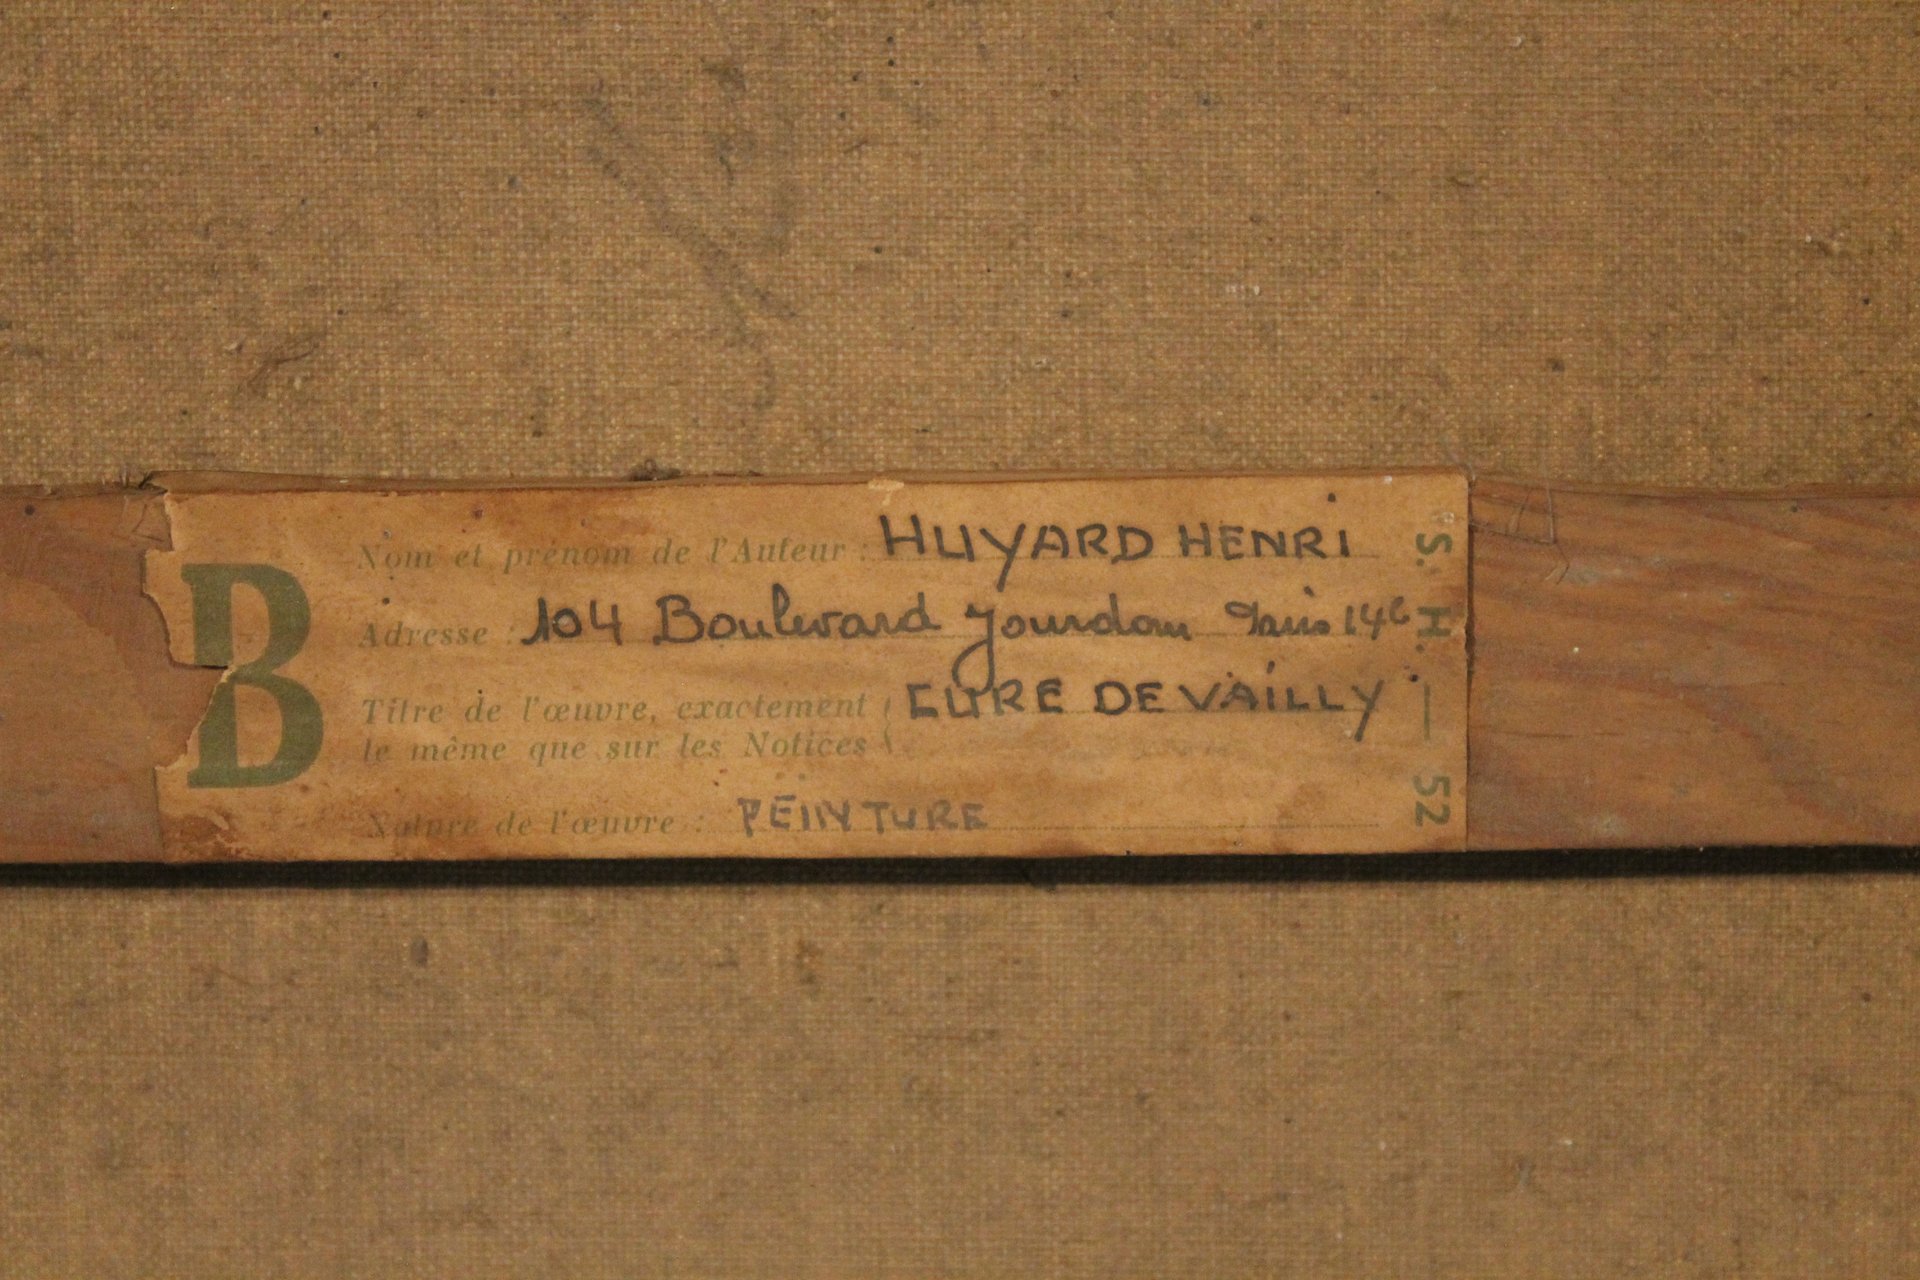 B
Nom et prénom de l'Auteur : HUYARD HENRI
Adresse : 104 Boulevard Jourdan Paris 14e
Titre de l'œuvre, exactement CURE DE VAILLY
le même que sur les Notices
Nature de l'œuvre : PEINTURE
S. H. — 52